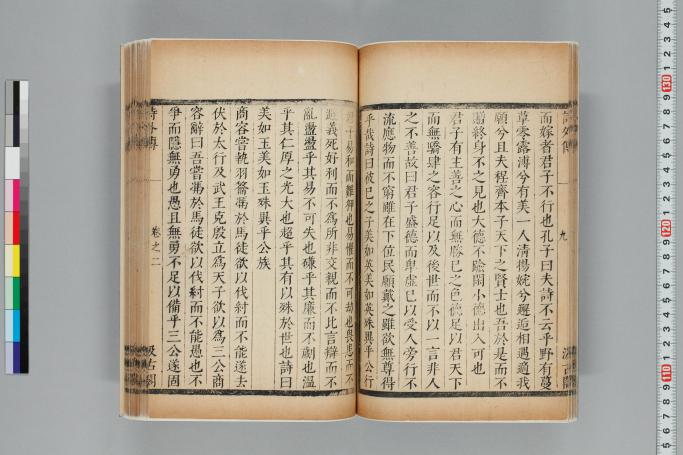 而嫁者君子不行也孔子曰夫詩不云乎野有蔓
草零露漙兮有美一人清揚婉兮邂逅相遇適我
願兮且夫程齊本子天下之賢士也吾於是而不
贈終身不之見也大德不踰閑小德出入可也
君子有主善之心而無勝己之色德足以君天下
而無驕肆之容行足以及後世而不以一言非人
之不善故曰君子盛德而卑虛己以受人旁行不
流應物而不窮雖在下位民願戴之雖欲無尊得
乎哉詩曰彼己之子美如英美如英殊異乎公行
君子易和而難狎也易懼而不可劫也畏患而不
避義死好利而不為所非交親而不比言辯而不
亂盪盪乎其易不可失也磏乎其廉而不劌也溫
乎其仁厚之光大也超乎其有以殊於世也詩曰
美如玉美如玉殊異乎公族
商容嘗執羽籥馮於馬徒欲以伐紂而不能遂去
伏於太行及武王克殷立為天子欲以為三公商
容辭曰吾嘗馮於馬徒欲以伐紂而不能愚也不
爭而隱無勇也愚且無勇不足以備乎三公遂固
詩外傳
卷之二
九
汲古閣
10
110
120
130